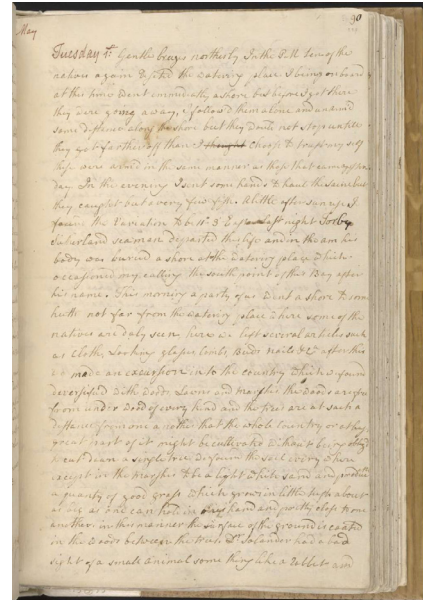 90
May
Tuesday 1st Gentle breeze northerly In the PM ten of the
natives again visited the watering place I being on board
at this time went emmidiatly ashore but before I got there
they were going away, I follow'd them alone and unarm'd
some distance along shore but they would not stop untill
they got farther off than I thought choose to trust my self
these were arm'd in the same manner as those that came yester
day In the evening I sent some hands to haul the Saine but
they caught but a very few fish. A little after sunrise I
found the Variation to be 11° 3' East last night Forby
Sutherland seaman departed this life and in the AM his
body was buried a shore at the watering place which
occasioned my calling the south point of this Bay after
his name. This morning a party of us went a shore to some
hutts not far from the watering place where some of the
natives are daly seen here we left several articles such
as Cloth, Looking glasses Combs, Beeds nails &c after this
we made an excursion into the country which we found
deversified with woods Lawns and marshes the woods are free
from under wood of every kind and the trees are at such a
distance from one a nother that the whole Country or at least
great part of it might be cultivated without being oblig'd
to cut down a single tree we found the soil every where
except in the marshes to be a light white sand and produceth
a quanty of good grass which grows in little tufts about
as big as one can hold in ones hand and pretty close to one
another. in this manner the surface of the ground is coated
in the woods between the trees Dr Solander had a bad
sight of a small Animal some thing like a rabbit and